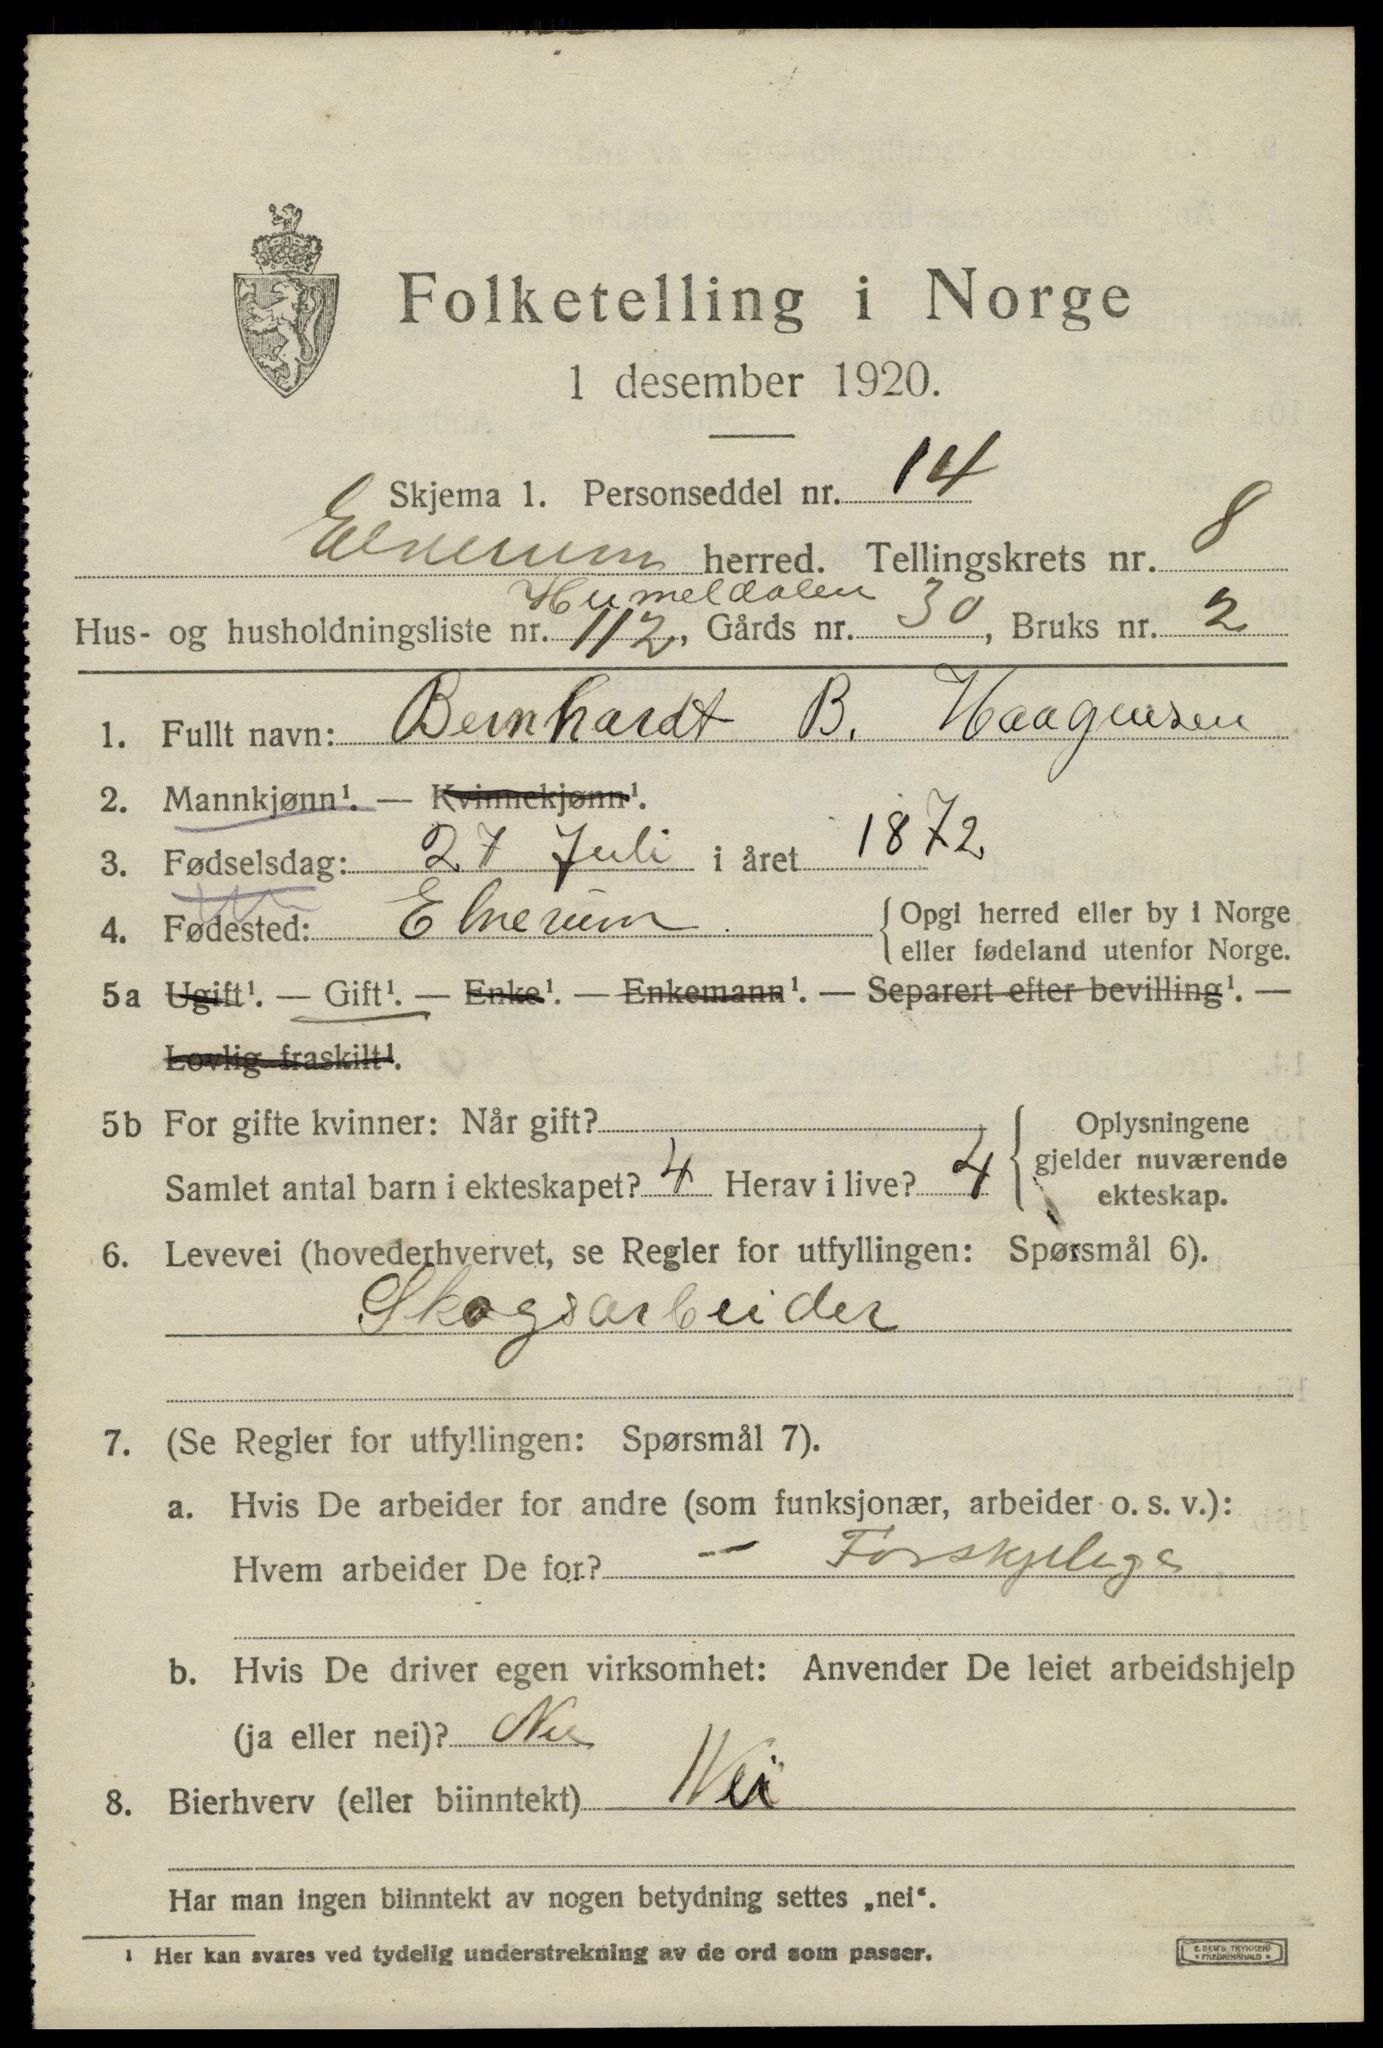 Folketelling i Norge
1 desember 1920.
Skjema 1. Personseddel nr. 14
Elverum herred. Tellingskrets nr. 8
Humeldalen
Hus- og husholdningsliste nr. 112, Gårds nr. 30, Bruks nr. 2
1. Fullt navn: Bernhardt B. Haagensen
2. Mannkjønn¹. — Kvinnekjønn¹.
3. Fødselsdag: 27 Juli i året 1872
4. Fødested: Elverum { Opgi herred eller by i Norge
eller fødeland utenfor Norge.
5a Ugift¹. — Gift¹. — Enke¹. — Enkemann¹. — Separert efter bevilling¹. —
Lovlig fraskilt¹.
5b For gifte kvinner: Når gift? { Oplysningene
gjelder nuværende
Samlet antal barn i ekteskapet? 4 Herav i live? 4 ekteskap.
6. Levevei (hovederhvervet, se Regler for utfyllingen: Spørsmål 6).
Skogsarbeider
7. (Se Regler for utfyllingen: Spørsmål 7).
a. Hvis De arbeider for andre (som funksjonær, arbeider o. s. v.):
Hvem arbeider De for? — Forskjelige
b. Hvis De driver egen virksomhet: Anvender De leiet arbeidshjelp
(ja eller nei)? Nei
8. Bierhverv (eller biinntekt) Nei
Har man ingen biinntekt av nogen betydning settes „nei“.
¹ Her kan svares ved tydelig understrekning av de ord som passer.
E. SEM'S TRYKKERI
FREDRIKSHALD